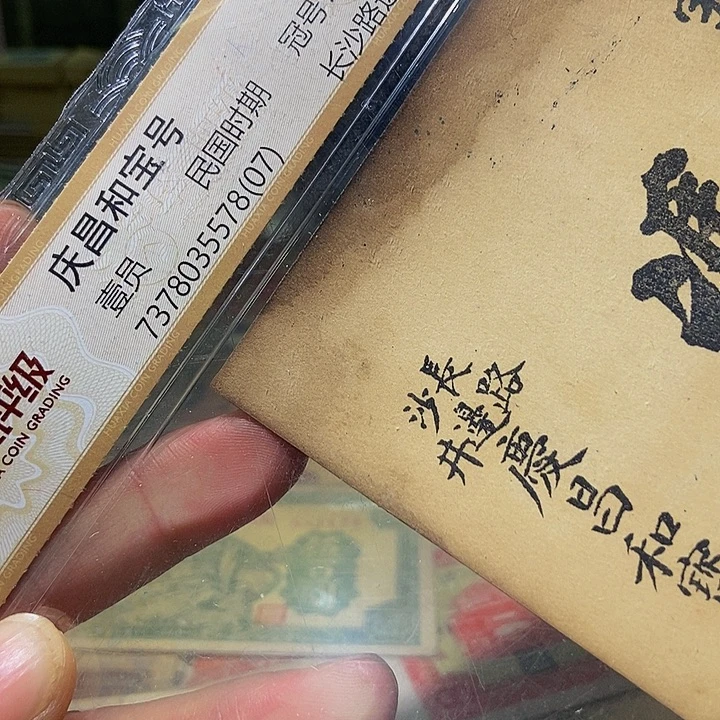 庆昌和宝号
壹员
民国时期
冠号
7378035578(07)
长沙路边
评级
COIN GRADING
長沙井
路邊
慶昌和寶